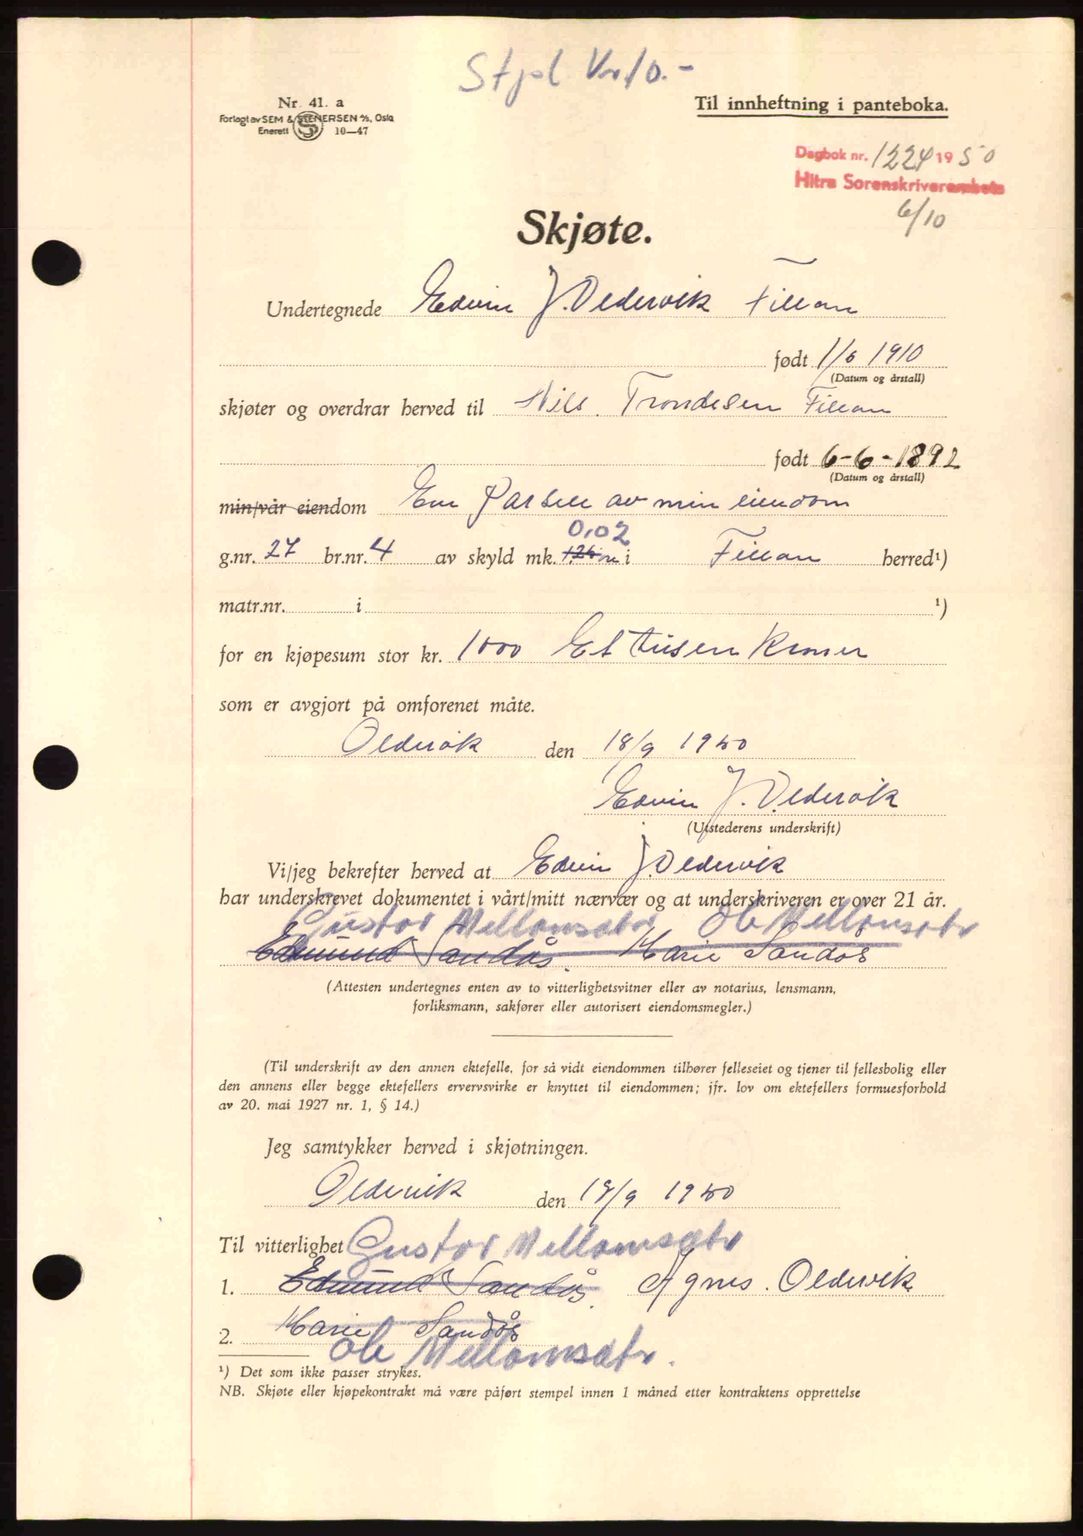 Stpl Kr 10.-
Nr. 41. a
Forlagt av SEM & STENERSEN A/S, Oslo
Enerett 10—47
Til innheftning i panteboka.
Dagbok nr. 1224 1950
Hitra Sorenskriverembete
6/10
Skjøte.
Undertegnede Edvin J. Oldervik Fillan
født 1/6 1910
(Datum og årstall)
skjøter og overdrar herved til Nils Trondesen Fillan
født 6-6-1892
(Datum og årstall)
min/vår eiendom En Parsell av min eiendom
0,02
g.nr. 27 br.nr. 4 av skyld mk. i Fillan herred¹)
matr.nr. i ¹)
for en kjøpesum stor kr. 1000 Et tusen Kroner
som er avgjort på omforenet måte.
Oldervik den 18/9 1950
Edvin J. Oldervik
(Utstederens underskrift)
Vi/jeg bekrefter herved at Edvin J. Oldervik
har underskrevet dokumentet i vårt/mitt nærvær og at underskriveren er over 21 år.
Gustav Mellomsætr Ole Mellomsætr
Edmund Sandås. Marie Sandås
(Attesten undertegnes enten av to vitterlighetsvitner eller av notarius, lensmann,
forliksmann, sakfører eller autorisert eiendomsmegler.)
(Til underskrift av den annen ektefelle, for så vidt eiendommen tilhører felleseiet og tjener til fellesbolig eller
den annens eller begge ektefellers ervervsvirke er knyttet til eiendommen; jfr. lov om ektefellers formuesforhold
av 20. mai 1927 nr. 1, § 14.)
Jeg samtykker herved i skjøtningen.
Oldervik den 18/9 1950
Til vitterlighet Gustav Mellomsætr
1. Edmund Sandås. Agnes Oldervik
2. Marie Sandås
Ole Mellomsætr.
¹) Det som ikke passer strykes.
NB. Skjøte eller kjøpekontrakt må være påført stempel innen 1 måned etter kontraktens opprettelse